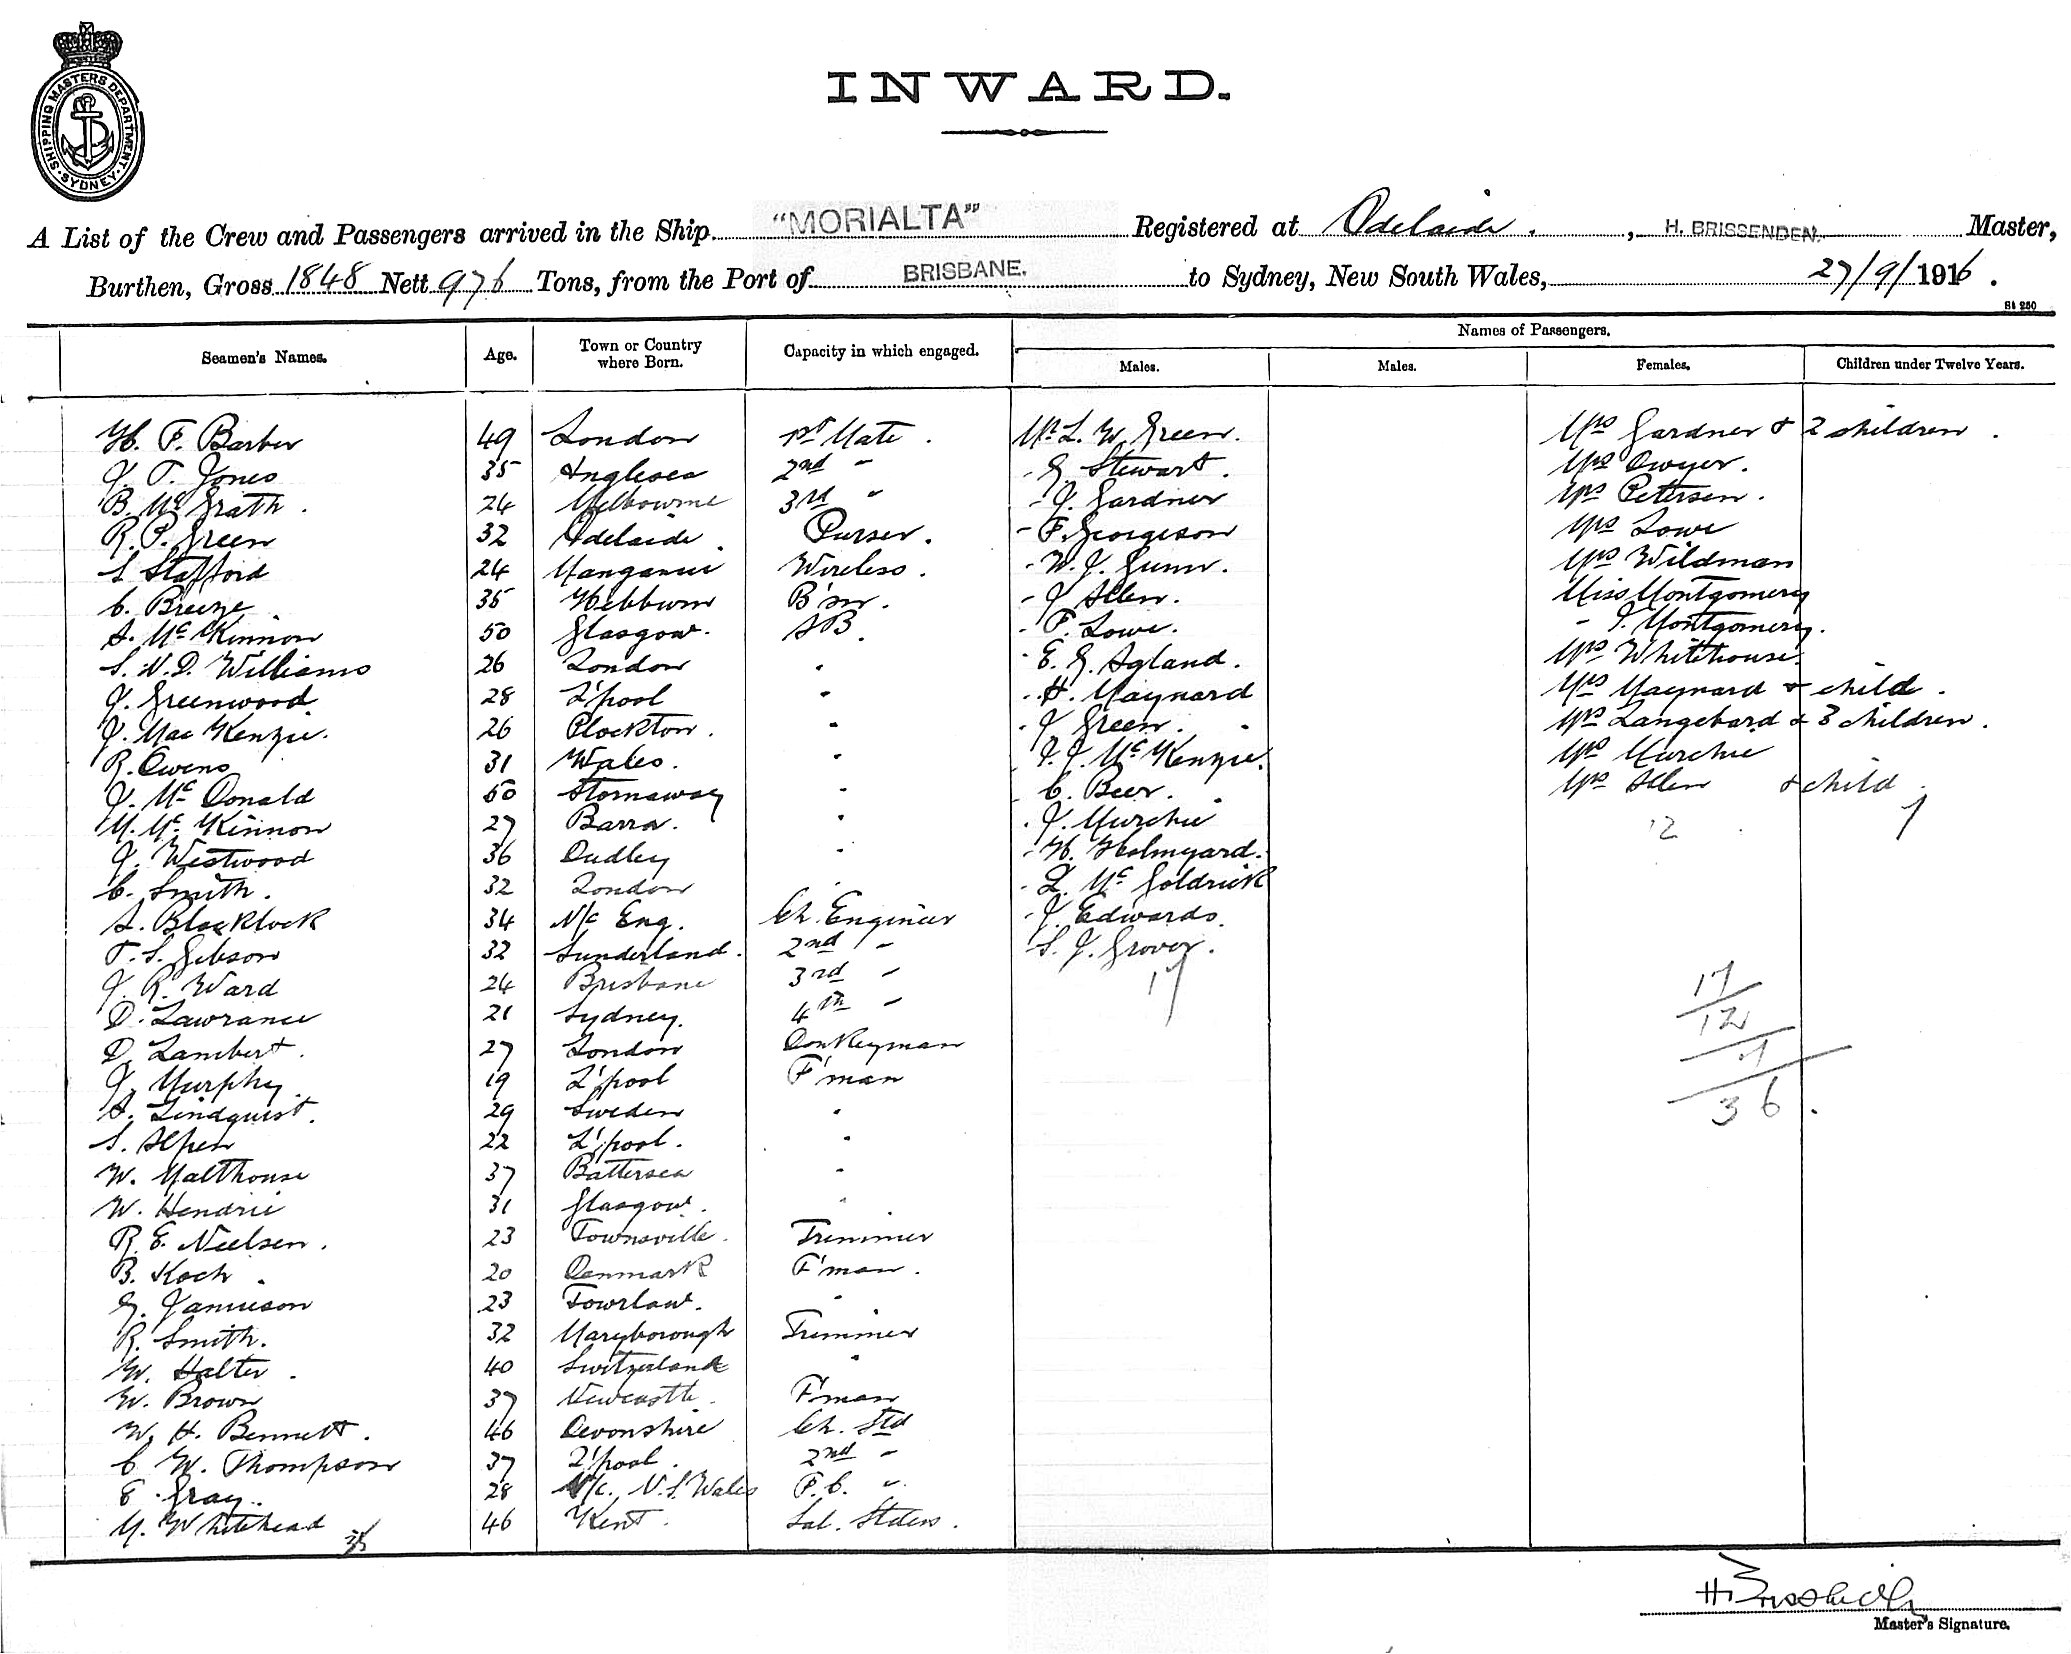 SHIPPING MASTERS DEPARTMENT
SYDNEY
INWARD.
A List of the Crew and Passengers arrived in the Ship "MORIALTA" Registered at Adelaide. , H. BRISSENDEN. Master,
Burthen, Gross 1848 Nett 976 Tons, from the Port of BRISBANE. to Sydney, New South Wales, 27/9/1916.
St 250
Names of Passengers.
Seamen's Names. Age. Town or Country where Born. Capacity in which engaged. Males. Males. Females. Children under Twelve Years.
H. F. Barber 49 London 1st Mate. Mr L. W. Green. Mrs Gardner & 2 children.
J. T. Jones 35 Anglesea 2nd " - G. Stewart. Mrs Dwyer.
B. McGrath. 24 Melbourne 3rd " - J. Gardner Mrs Petersen.
R. P. Green 32 Adelaide. Purser. - F. Georgeson Mrs Lowe
S Stafford 24 Wireless. - W. J. Gunn. Mrs Wildman
C. Breeze 35 Hebburn B'm. - J Allen. Miss Montgomery
A. McKinnon 50 Glasgow. AB. - F. Lowe. - J. Montgomery.
S. W. D. Williams 26 London " - E. G. Agland. Mrs Whitehouse.
J. Greenwood 28 L'pool " - H. Maynard Mrs Maynard & child.
J. MacKenzie. 26 Plockton. " - J Green. Mrs Langebard & 3 children.
R. Owens 31 Wales. " - J. J. McKenzie. Mrs Murchie
J. McDonald 50 Stornaway " - C. Beer. Mrs Allen & child
M. McKinnon 27 Barra. " - J. Murchie 12 7
J. Westwood 36 Dudley " - H. Holmyard.
C. Smith. 32 London " - L. McGoldrick
A. Blacklock 34 N/c Eng. Ch. Engineer - J. Edwards.
T. S. Gibson 32 Sunderland. 2nd " - S. J. Grover.
J. R. Ward 24 Brisbane 3rd " 17 17
D. Lawrance 21 Sydney. 4th " 12
D. Lambert. 27 London Donkeyman 7
J. Murphy 19 L'pool F'man
A. Lindquist. 29 Sweden " 36.
S. Alpen 22 L'pool. "
W. Malthouse 37 Battersea "
W. Hendrie 31 Glasgow. "
R. E. Neilsen. 23 Townsville. Trimmer
B. Koch. 20 Denmark F'man.
G. Jamieson 23 Towlaw. "
R. Smith. 32 Maryborough Trimmer
W. Halter. 40 Switzerland "
W. Brown 37 Newcastle. F'man
W. H. Bennett. 46 Devonshire Ch. Std
C W. Thompson 37 L'pool. 2nd "
E. Gray. 28 N/c. N.S. Wales F.C. "
M. Whitehead 46 Kent. Sal. Stdess.
H. Brissenden
Master's Signature.